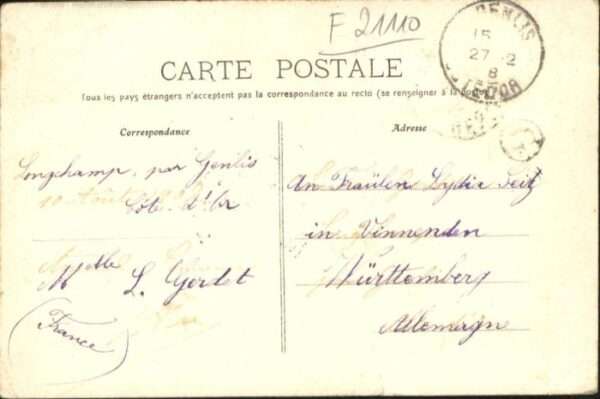 F 21110
GENLIS
15
27 -2
8
CÔTE D'OR
CARTE POSTALE
Tous les pays étrangers n'acceptent pas la correspondance au recto (se renseigner à la poste)
Correspondance
Adresse
Longchamp, par Genlis
Côte d'Or
Melle L. Gerdet
(France)
An Fräulen Lydia Seitz
in Vinnenden
Württemberg
Allemagne